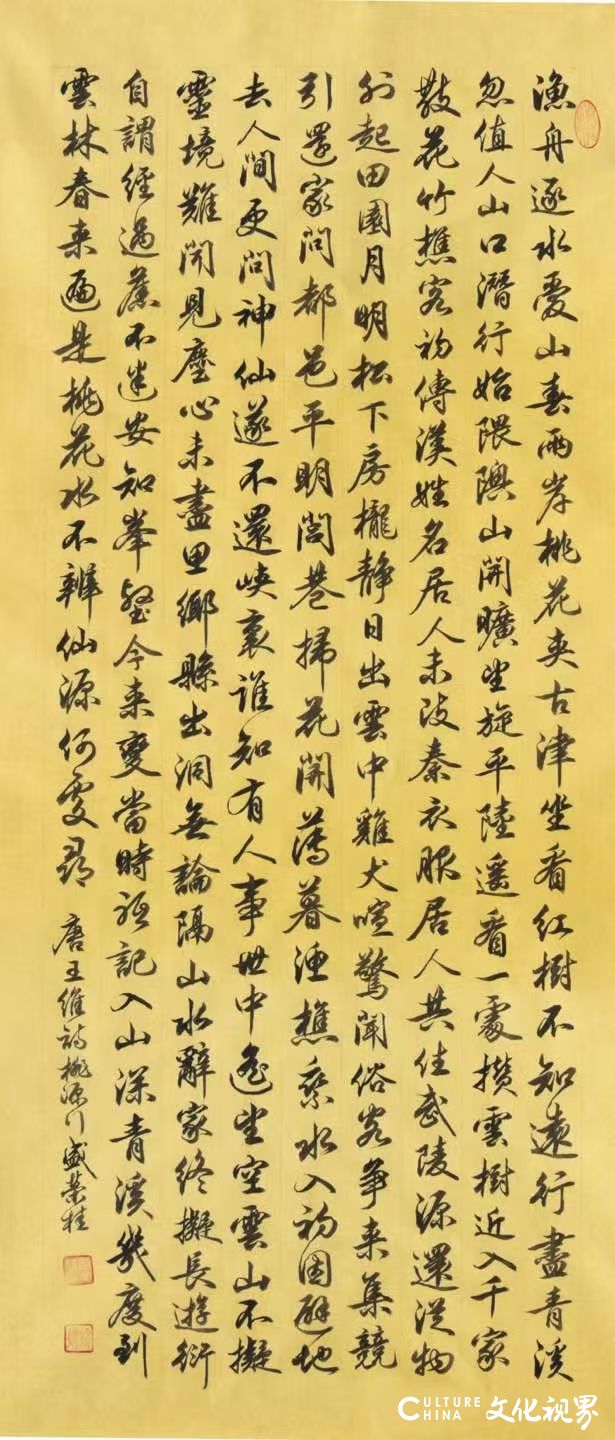 漁舟逐水愛山春兩岸桃花夾古津坐看紅樹不知遠行盡青溪
忽值人山口潛行始隈隩山開曠望旋平陸遙看一處攢雲樹近入千家
散花竹樵客初傳漢姓名居人未改秦衣服居人共住武陵源還從物
外起田園月明松下房櫳靜日出雲中雞犬喧驚聞俗客爭來集競
引還家問都邑平明閭巷掃花開薄暮漁樵乘水入初因避地
去人間更問神仙遂不還峽裏誰知有人事世中遙望空雲山不擬
靈境難聞見塵心未盡思鄉縣出洞無論隔山水辭家終擬長遊衍
自謂經過舊不迷安知峯壑今來變當時秖記入山深青溪幾度到
雲林春來遍是桃花水不辨仙源何處尋 唐王維詩桃源行 盛榮桂
CULTURE CHINA 文化视界